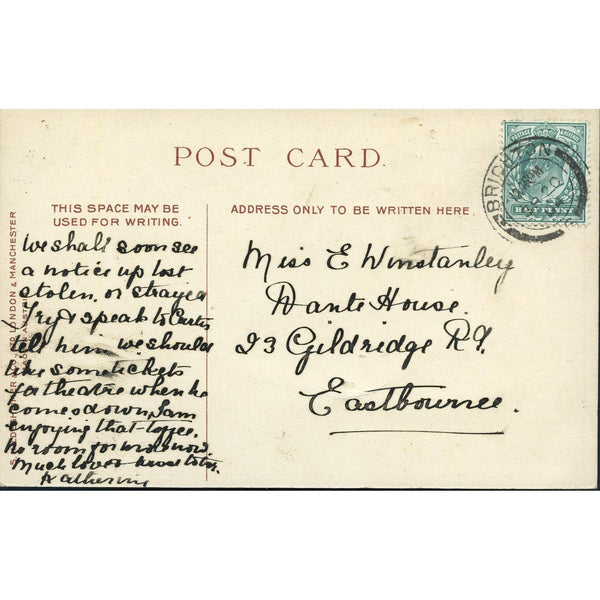 POST CARD.
THIS SPACE MAY BE
USED FOR WRITING.
We shall soon see
a notice up lost
stolen, or strayed
Try & speak to Curtis
tell him we should
like some tickets
for theatre when he
comes down, I am
enjoying that toffee.
No room for more now.
Much love
Katherine
ADDRESS ONLY TO BE WRITTEN HERE.
Miss E Winstanley
Dante House.
23 Gildridge Rd.
Eastbourne.
POSTAGE REVENUE
HALFPENNY
BRIGHTON
LONDON & MANCHESTER